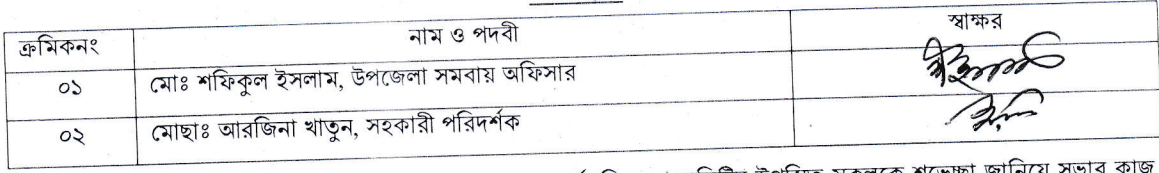 ক্রমিকনং নাম ও পদবী স্বাক্ষর
০১ মোঃ শফিকুল ইসলাম, উপজেলা সমবায় অফিসার
০২ মোছাঃ আরজিনা খাতুন, সহকারী পরিদর্শক
উপস্থিত সকলকে শুভেচ্ছা জানিয়ে সভার কাজ